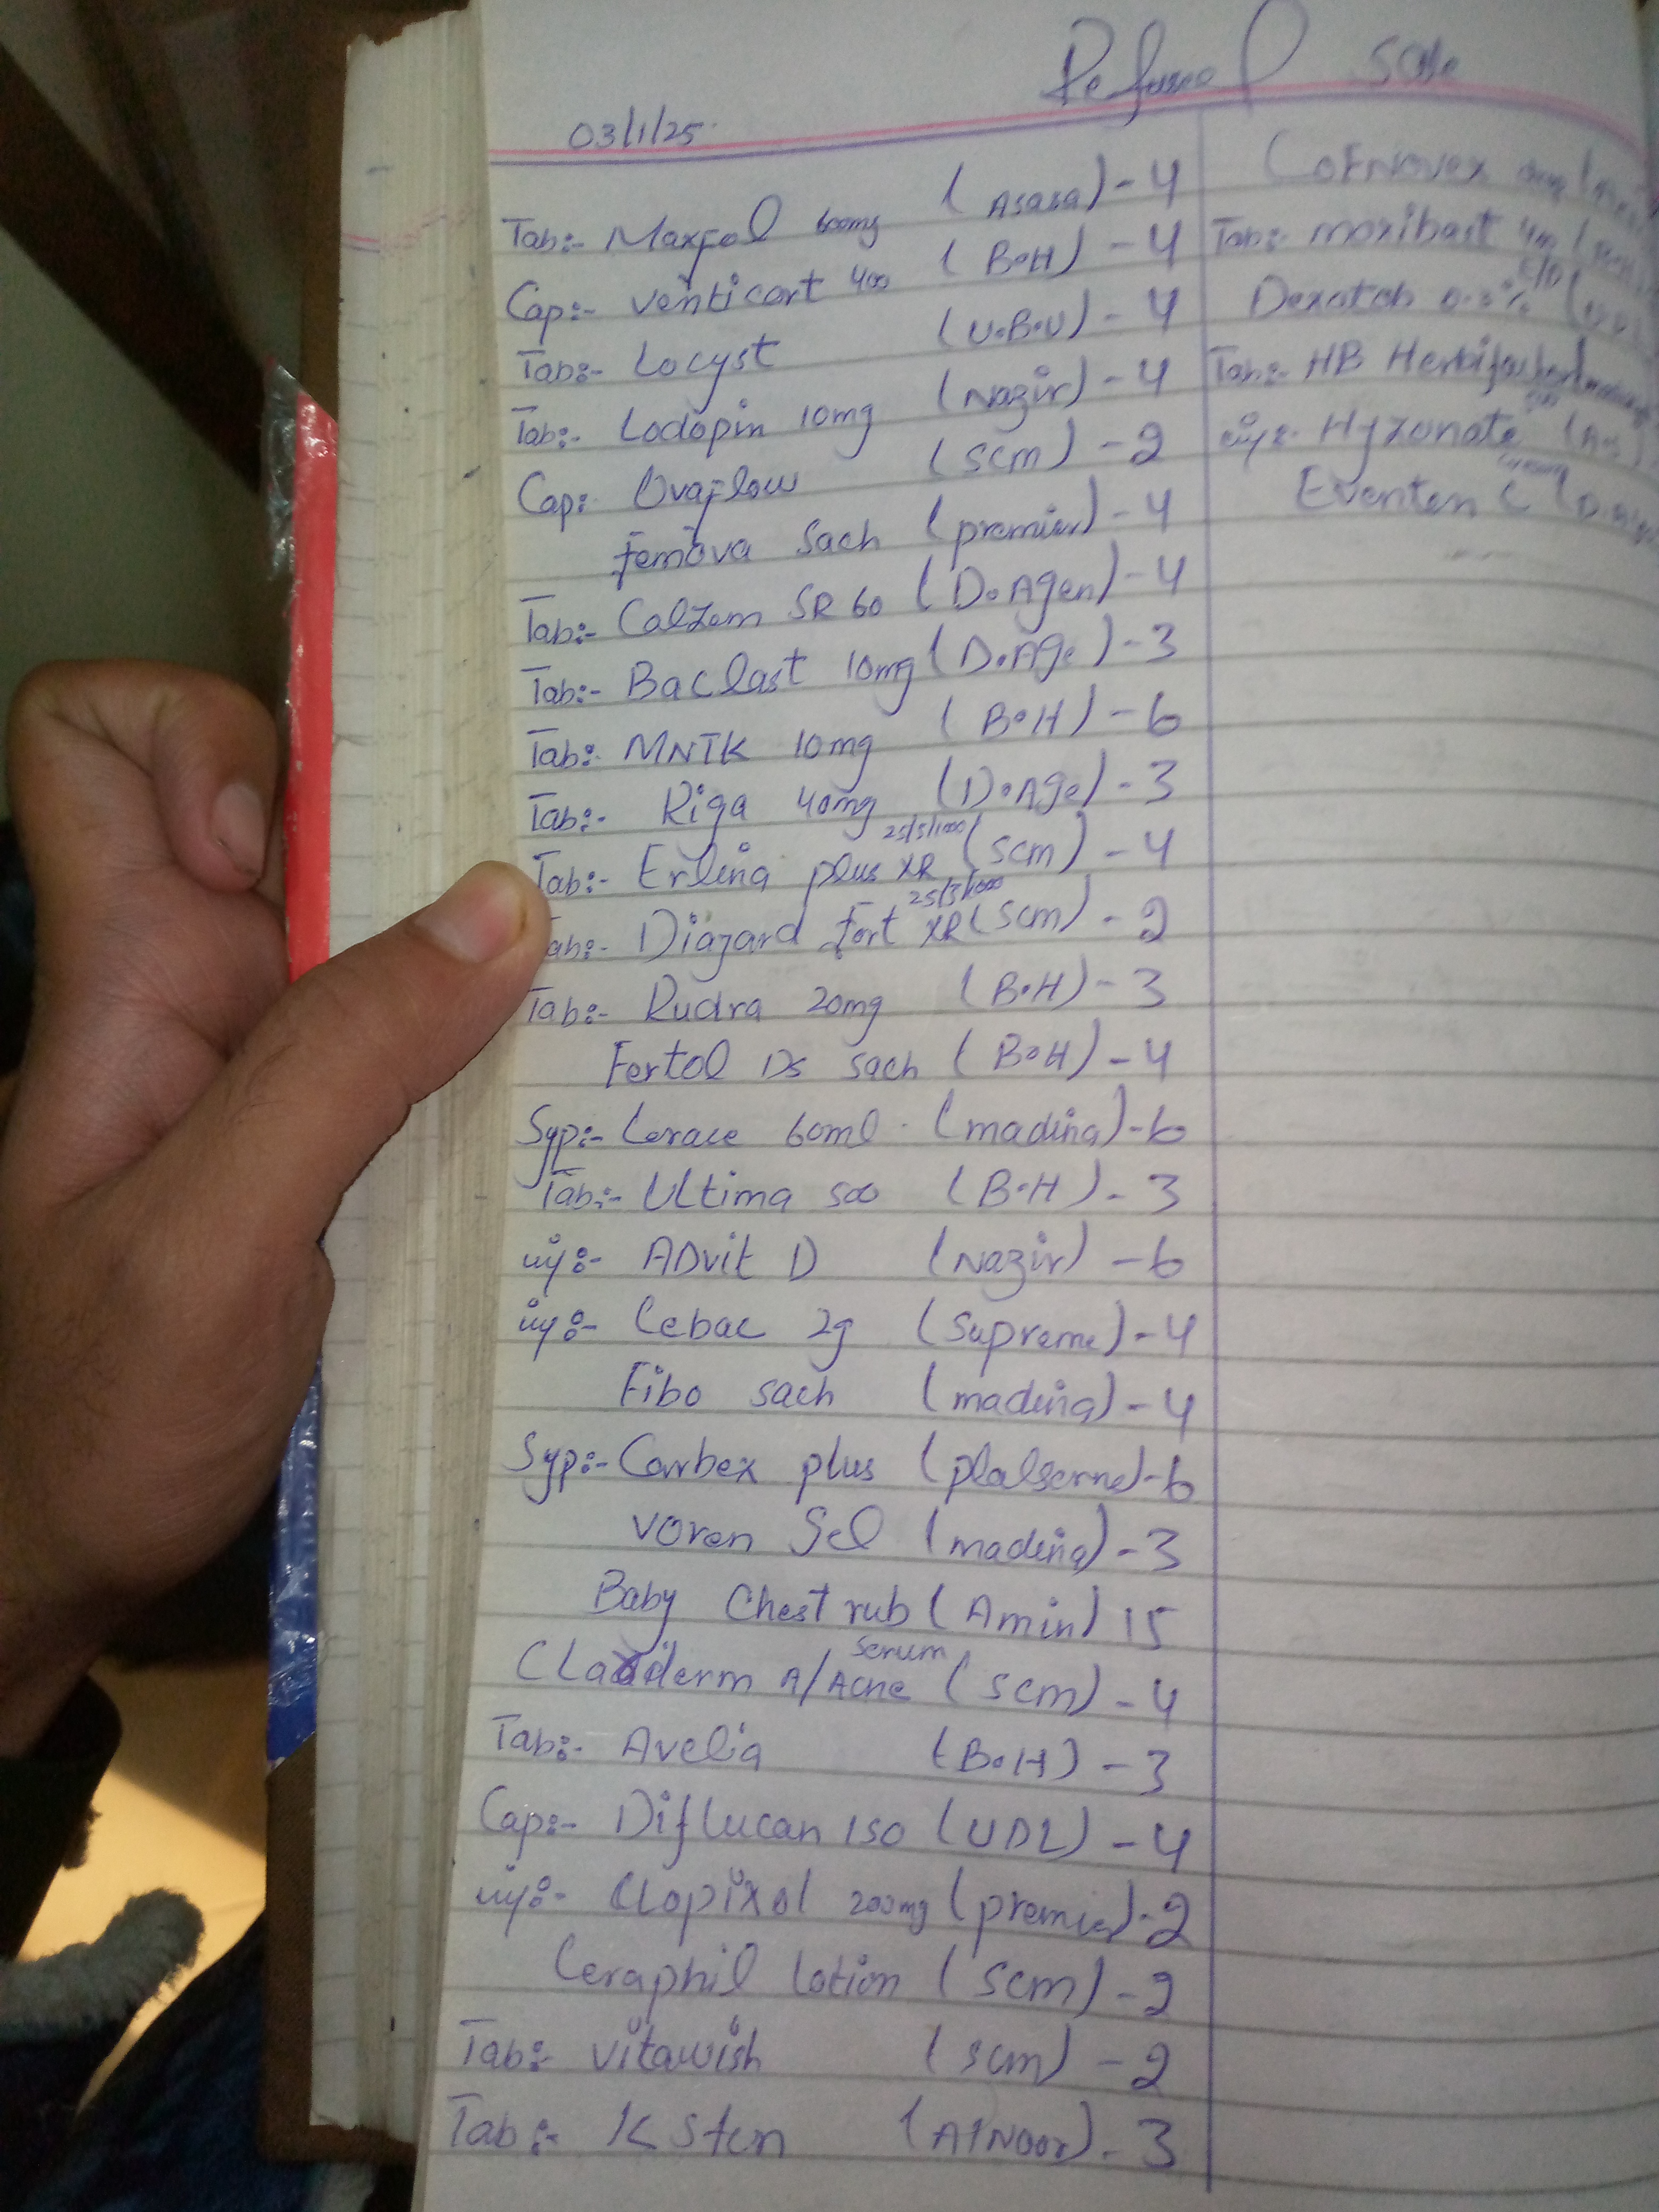 Refused Sale
03/1/25
Tab:- Maxfol 600mg (Asasa) - 4
Cap:- venticort 400 (B.H) - 4
Tab:- Locyst (U.B.U) - 4
Tab:- Lodopin 10mg (Nazir) - 4
Cap: Ovaflow (scm) - 2
femova Sach (premier) - 4
Tab:- Calzem SR 60 (D.Agen) - 4
Tab:- Baclast 10mg (D.Age) - 3
Tab:- MNTK 10mg (B.H) - 6
Tab:- Riga 40mg (D.Age) - 3
Tab:- Erlina plus XR 25/5/1000 (scm) - 4
Tab:- Diazard fort XR 25/5/1000 (scm) - 2
Tab:- Rudra 20mg (B.H) - 3
Fertol Ds sach (B.H) - 4
Syp:- Cerace 60ml (madina) - 6
Tab:- Ultima 500 (B.H) - 3
inj:- ADvit D (Nazir) - 6
inj:- Cebac 2g (Supreme) - 4
Fibo sach (madina) - 4
Syp:- Corrbex plus - 6
Voren Gel (madina) - 3
Baby Chest rub (Amin) 15
Claderm A/Acne Serum (scm) - 4
Tab:- Avelia (B.H) - 3
Cap:- Diflucan 150 (UDL) - 4
inj:- Clopixol 200mg (premier) - 2
Ceraphil lotion (scm) - 2
Tab:- vitawish (scm) - 2
Tab:- K Sten (AlNoor) - 3
Tab:- moxibact
Dexatob 0.3%
Tab:- HB
inj:- Hyzonate
Eventen C